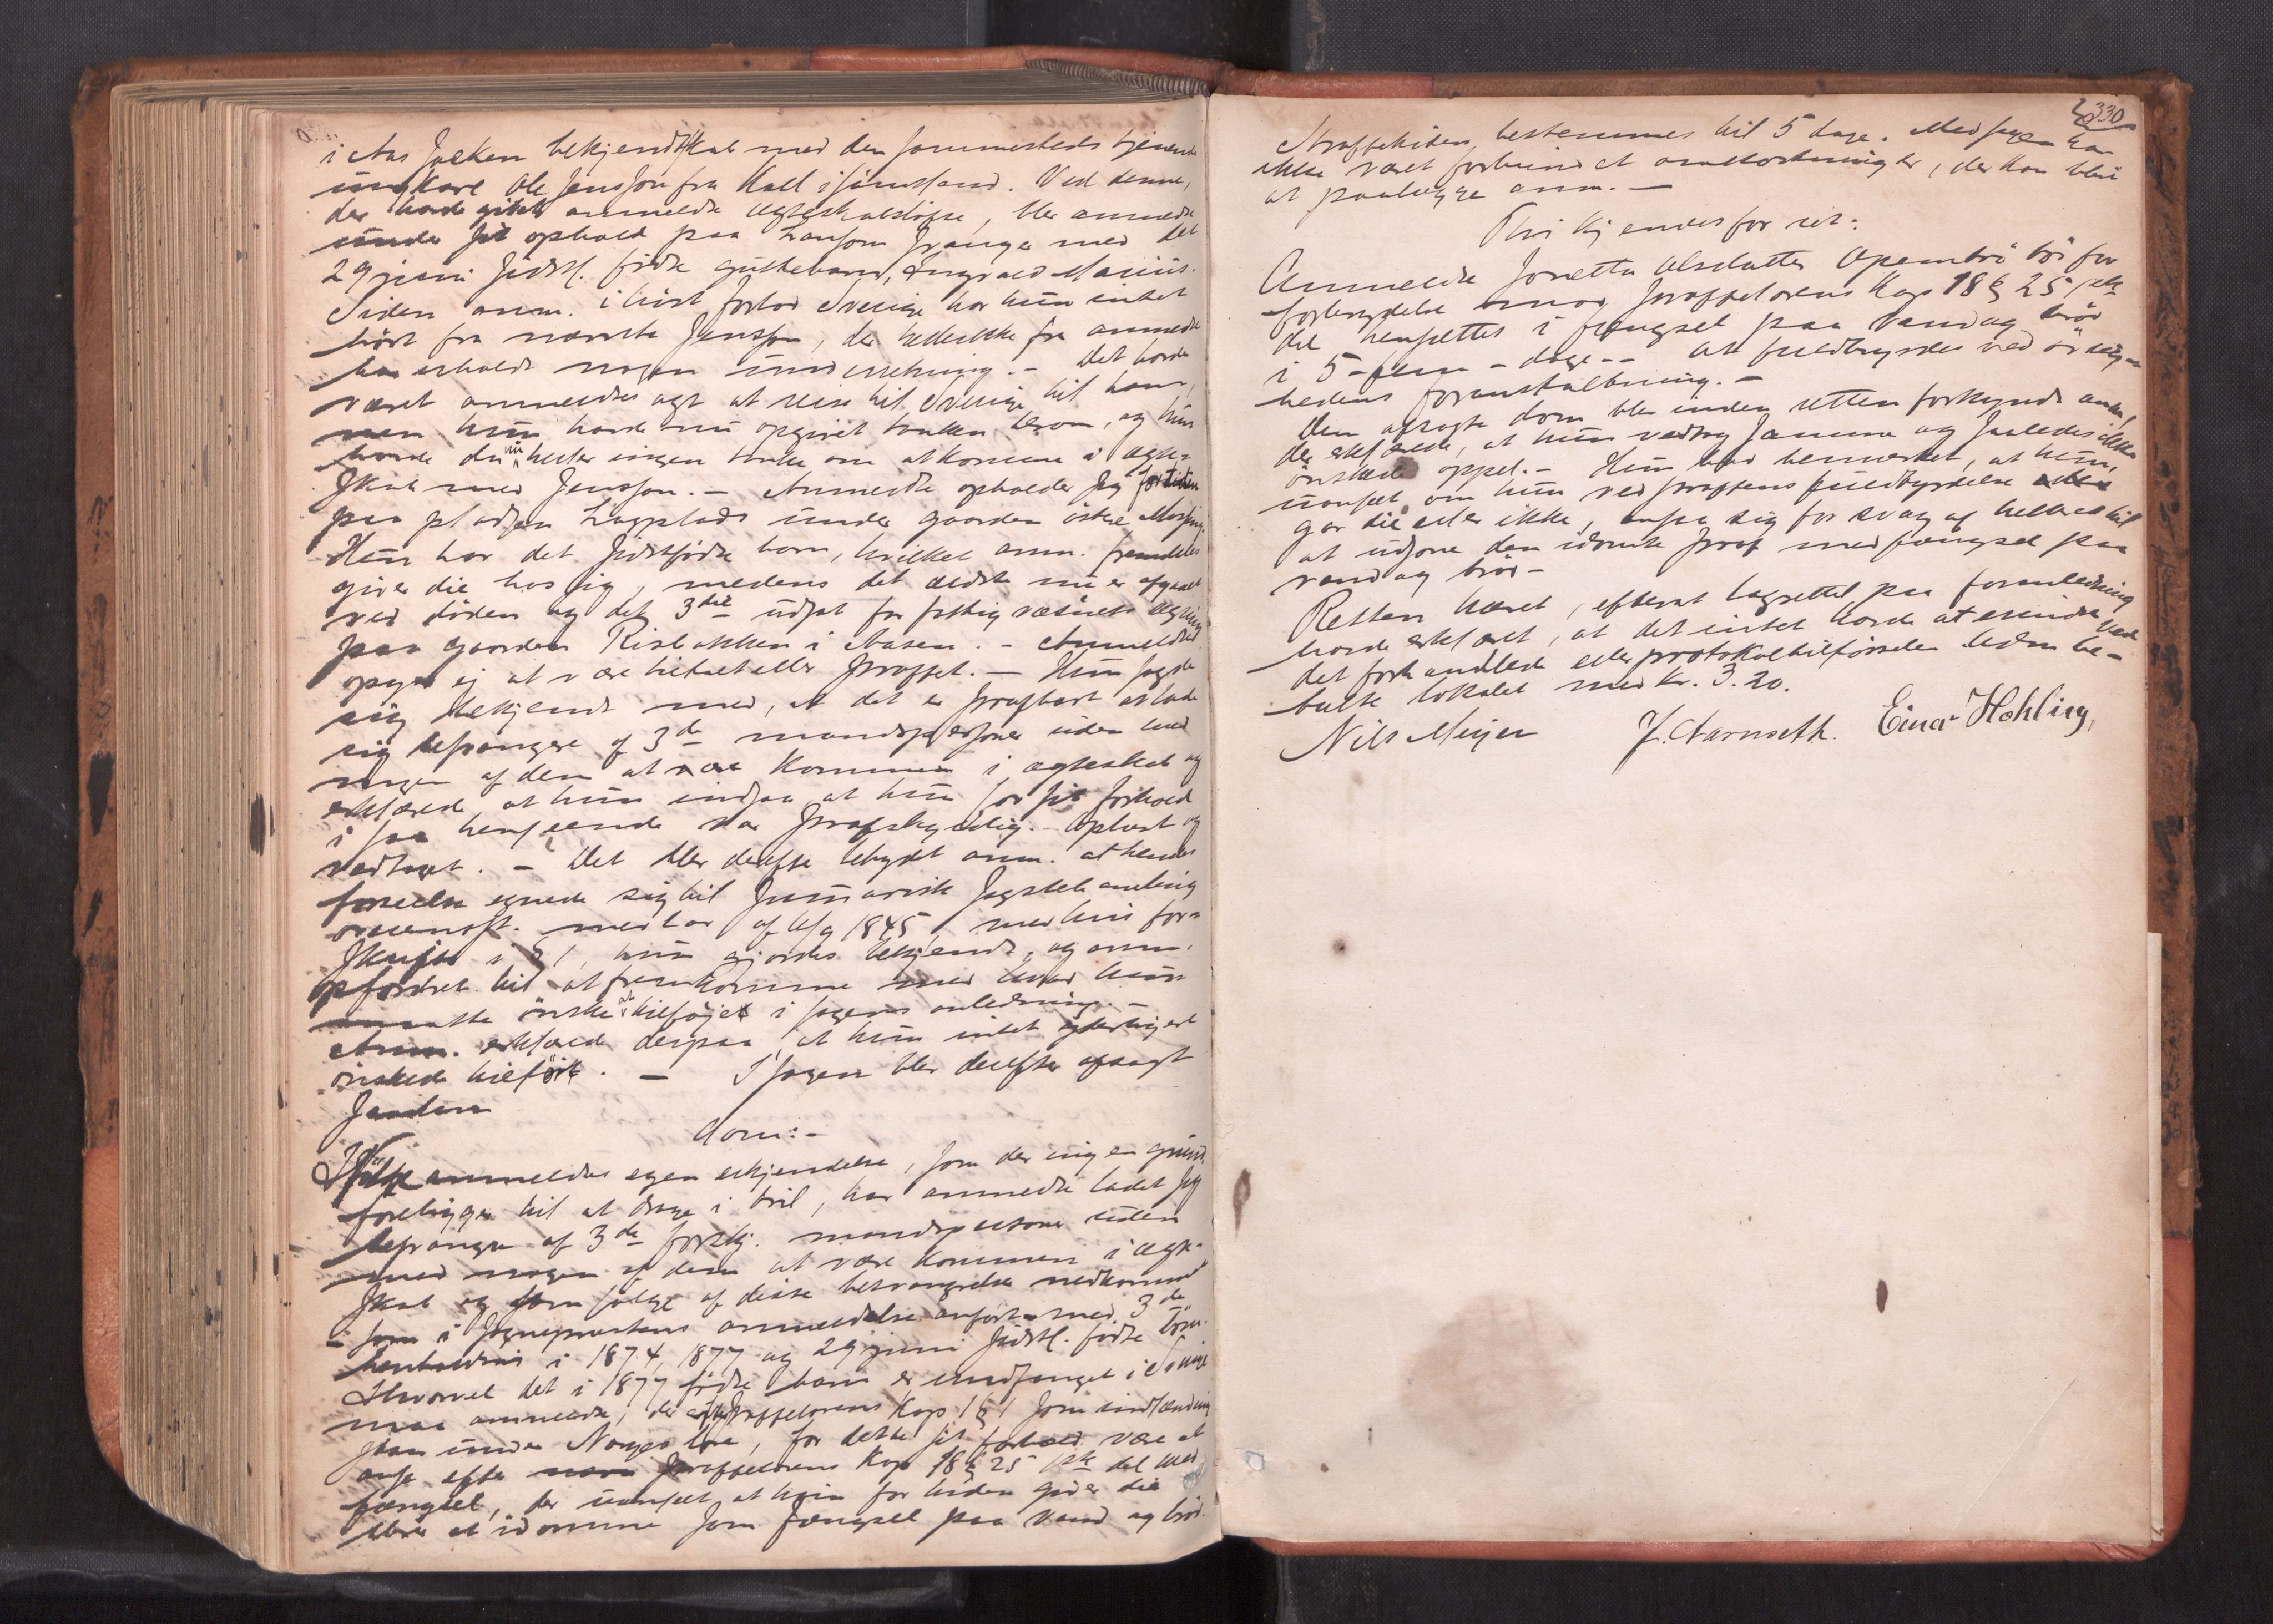 i Aas socken bekjendtskab med den sammesteds tjenende
ungkarl Ole Jensson fra Kall i Jämtland. Ved denne,
der havde givet anmeldte ægteskabsløfte, blev anmeldte
under sit ophold paa svanger med det
29 juni sidstl. fødte guttebarn, Ingvald Marius.
Siden anm. i høst forlod Sverige har hun intet
hørt fra nævnte Jensson, der heller ikke fra anmeldte
har erholdt nogen underretning. - Det havde
været anmeldtes agt at reise til Sverige til ham,
men hun havde nu opgivet tanken herom, og hun
havde da nu heller ingen tanke om at komme i ægte-
skab med Jensson. - Anmeldte opholder sig for tiden
paa pladsen under gaarden østre
Hun har det sidstfødte barn, hvilket anm. fremdeles
giver die hos sig, medens det ældste nu er afgaaet
ved døden og det 3die udsat for fattigvæsenets regning
paa gaarden Risbakken i Aasen. - Anmeldte
opgav ej at være tiltalt eller straffet. - Hun sagde
sig bekjendt med, at det er strafbart at lade
sig besvangre af 3de mandspersoner uden med
nogen af dem at være kommen i ægteskab og
erklærede at hun indsaa at hun for sit forhold
i saa henseende var strafskyldig. - Oplæst og
vedtaget. - Det blev derefter betydet anm. at hendes
forseelse egnede sig til summarisk sagsbehandling
overensst. med lov af 1845, med hvis for-
skrifter i § 1, hun gjordes bekjendt, og anm.
opfordret til at fremkomme med hvad hun
maatte ønske tilføjet i sagens anledning. -
Anm. erklærede derpaa at hun intet yderligere
ønskede tilført. - I sagen blev derefter afsagt
saadan
dom: -
Ifølge anmeldtes egen erkjendelse, som der ingen grund
foreligger til at drage i tvil, har anmeldte ladet sig
besvangre af 3de forskj. mandspersoner uden
med nogen af dem at være kommen i ægte-
skab og som følge af disse besvangrelser nedkommet
- som i sogneprestens anmeldelse anført - med 3de
henholdsvis i 1874, 1877 og 29 juni sidstl. fødte børn.
Hvorvel det i 1877 fødte barn er undfanget i Sverige
maa anmeldte, der efter straffelovens Kap 1 § 1 som indlænding
staar under Norges love, for dette sit forhold være at
anse efter straffelovens Kap 18 § 25 1ste del med
fængsel, der uanset at hun for tiden giver die
bliver at idømme som fængsel paa vand og brød.
330
Straffetiden bestemmes til 5 dage. Med sagen har
ikke været forbundet omkostninger, der kan blive
at paalægge anm. -
Thi kjendes for ret:
Anmeldte Jonetta Olsdatter Opembrö bør for
forbrydelse mod straffelovens Kap 18 § 25 1ste
del hensættes i fængsel paa vand og brød
i 5 - fem - dage. - At fuldbyrdes ved øvrig-
hedens foranstaltning. -
Den afsagte dom blev inden retten forkyndt anm.,
der erklærede, at hun vedtog samme og saaledes ikke
ønskede appel. - Hun bad bemærket, at hun,
uanset om hun ved straffens fuldbyrdelse
gav die eller ikke, ansaa sig for svag af helbred til
at udsone den idømte straf med fængsel paa
vand og brød -
Retten hævet, efterat lagrettet paa foranledning
havde erklæret, at det intet havde at erindre ved
det forhandlede eller protokoltilførselen. be-
talte lokalet med kr. 3.20.
Nils Meyer J. Aarnseth. Einar Hohling,